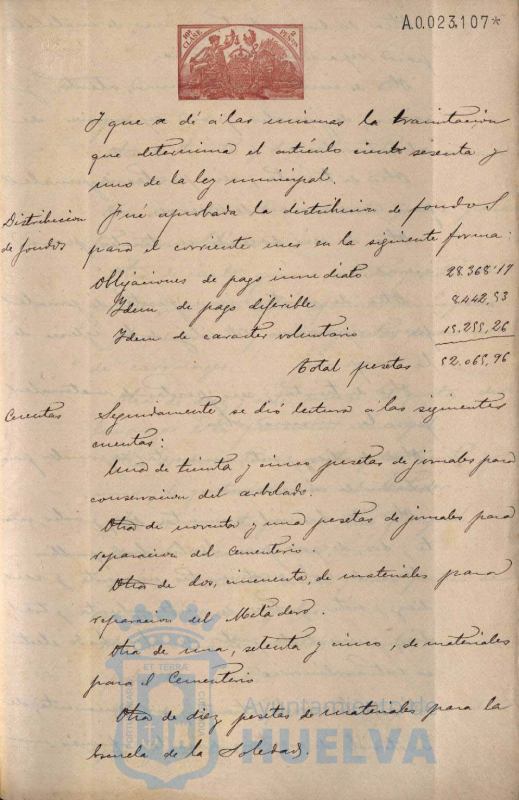 A.0.023.107*
10ª CLASE 2 PESETAS
y que se dé á las mismas la tramitación
que determina el artículo ciento sesenta y
uno de la ley municipal.
Distribucion de fondos
Fué aprobada la distribucion de fondos
para el corriente mes en la siguiente forma:
Obligaciones de pago inmediato 28.368'17
Idem de pago diferible 8.442,53
Idem de caracter voluntario 15.255,26
Total pesetas 52.065,96
Cuentas
Seguidamente se dió lectura á las siguientes
cuentas:
Una de treinta y cinco pesetas de jornales para
conservacion del arbolado.
Otra de noventa y una pesetas de jornales para
reparacion del Cementerio.
Otra de dos, cincuenta, de materiales para
reparacion del Matadero.
Otra de una, setenta y cinco, de materiales
para el Cementerio
Otra de diez pesetas de materiales para la
Escuela de la Soledad.
Ayuntamiento de
HUELVA